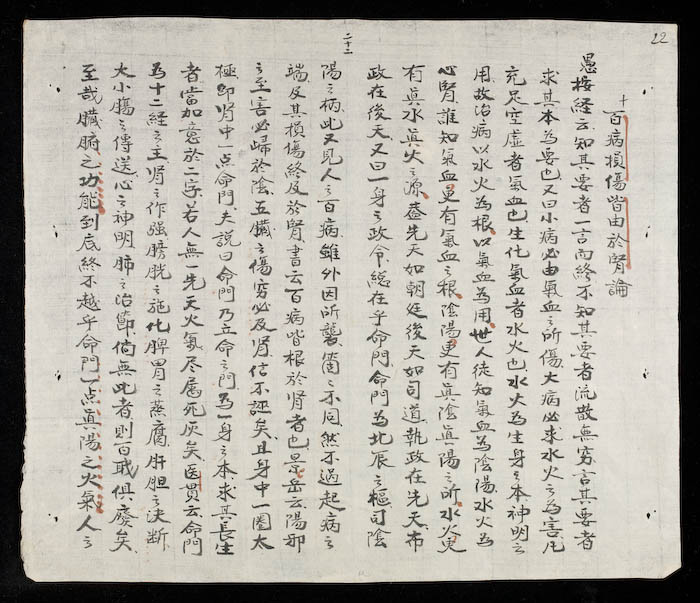 22
二十二
十
百病損傷皆由於腎論
愚按経云知其要者一言而終不知其要者流散無穷言其要者
求其本為要也又曰小病必由氣血之所傷大病必求水火之為害凢
充足空虚者氣血也生化氣血者水火也水火為生身之本神明之
用故治病以水火為根以氣血為用世人徒知氣血為陰陽水火為
心腎誰知氣血更有氣血之根陰陽更有真陰真陽之所水火更
有真水真火之源盖先天如朝廷後天如司道執政在先天布
政在後天又曰一身之政令総在乎命門命門為北辰之樞司陰
陽之柄此又見人之百病雖外因所襲箇之不同然不過起病之
端及其損傷終反於腎書云百病皆根於腎者也景岳云陽邪
之至害必歸於陰五臓之傷穷必及肾信不誣矣且身中一圈太
極即肾中一点命門夫説曰命門乃立命之門為一身之本求其長生
者當加意於二字若人無一先天火氣尽属死灰矣医貫云命門
為十二経之主肾之作强膀胱之施化脾胃之蒸腐肝胆之决断
大小膓之傳送心之神明肺之治節倘無此者則百職俱廢矣
至哉臓腑之功能到底終不越乎命門一点真陽之火氣人之